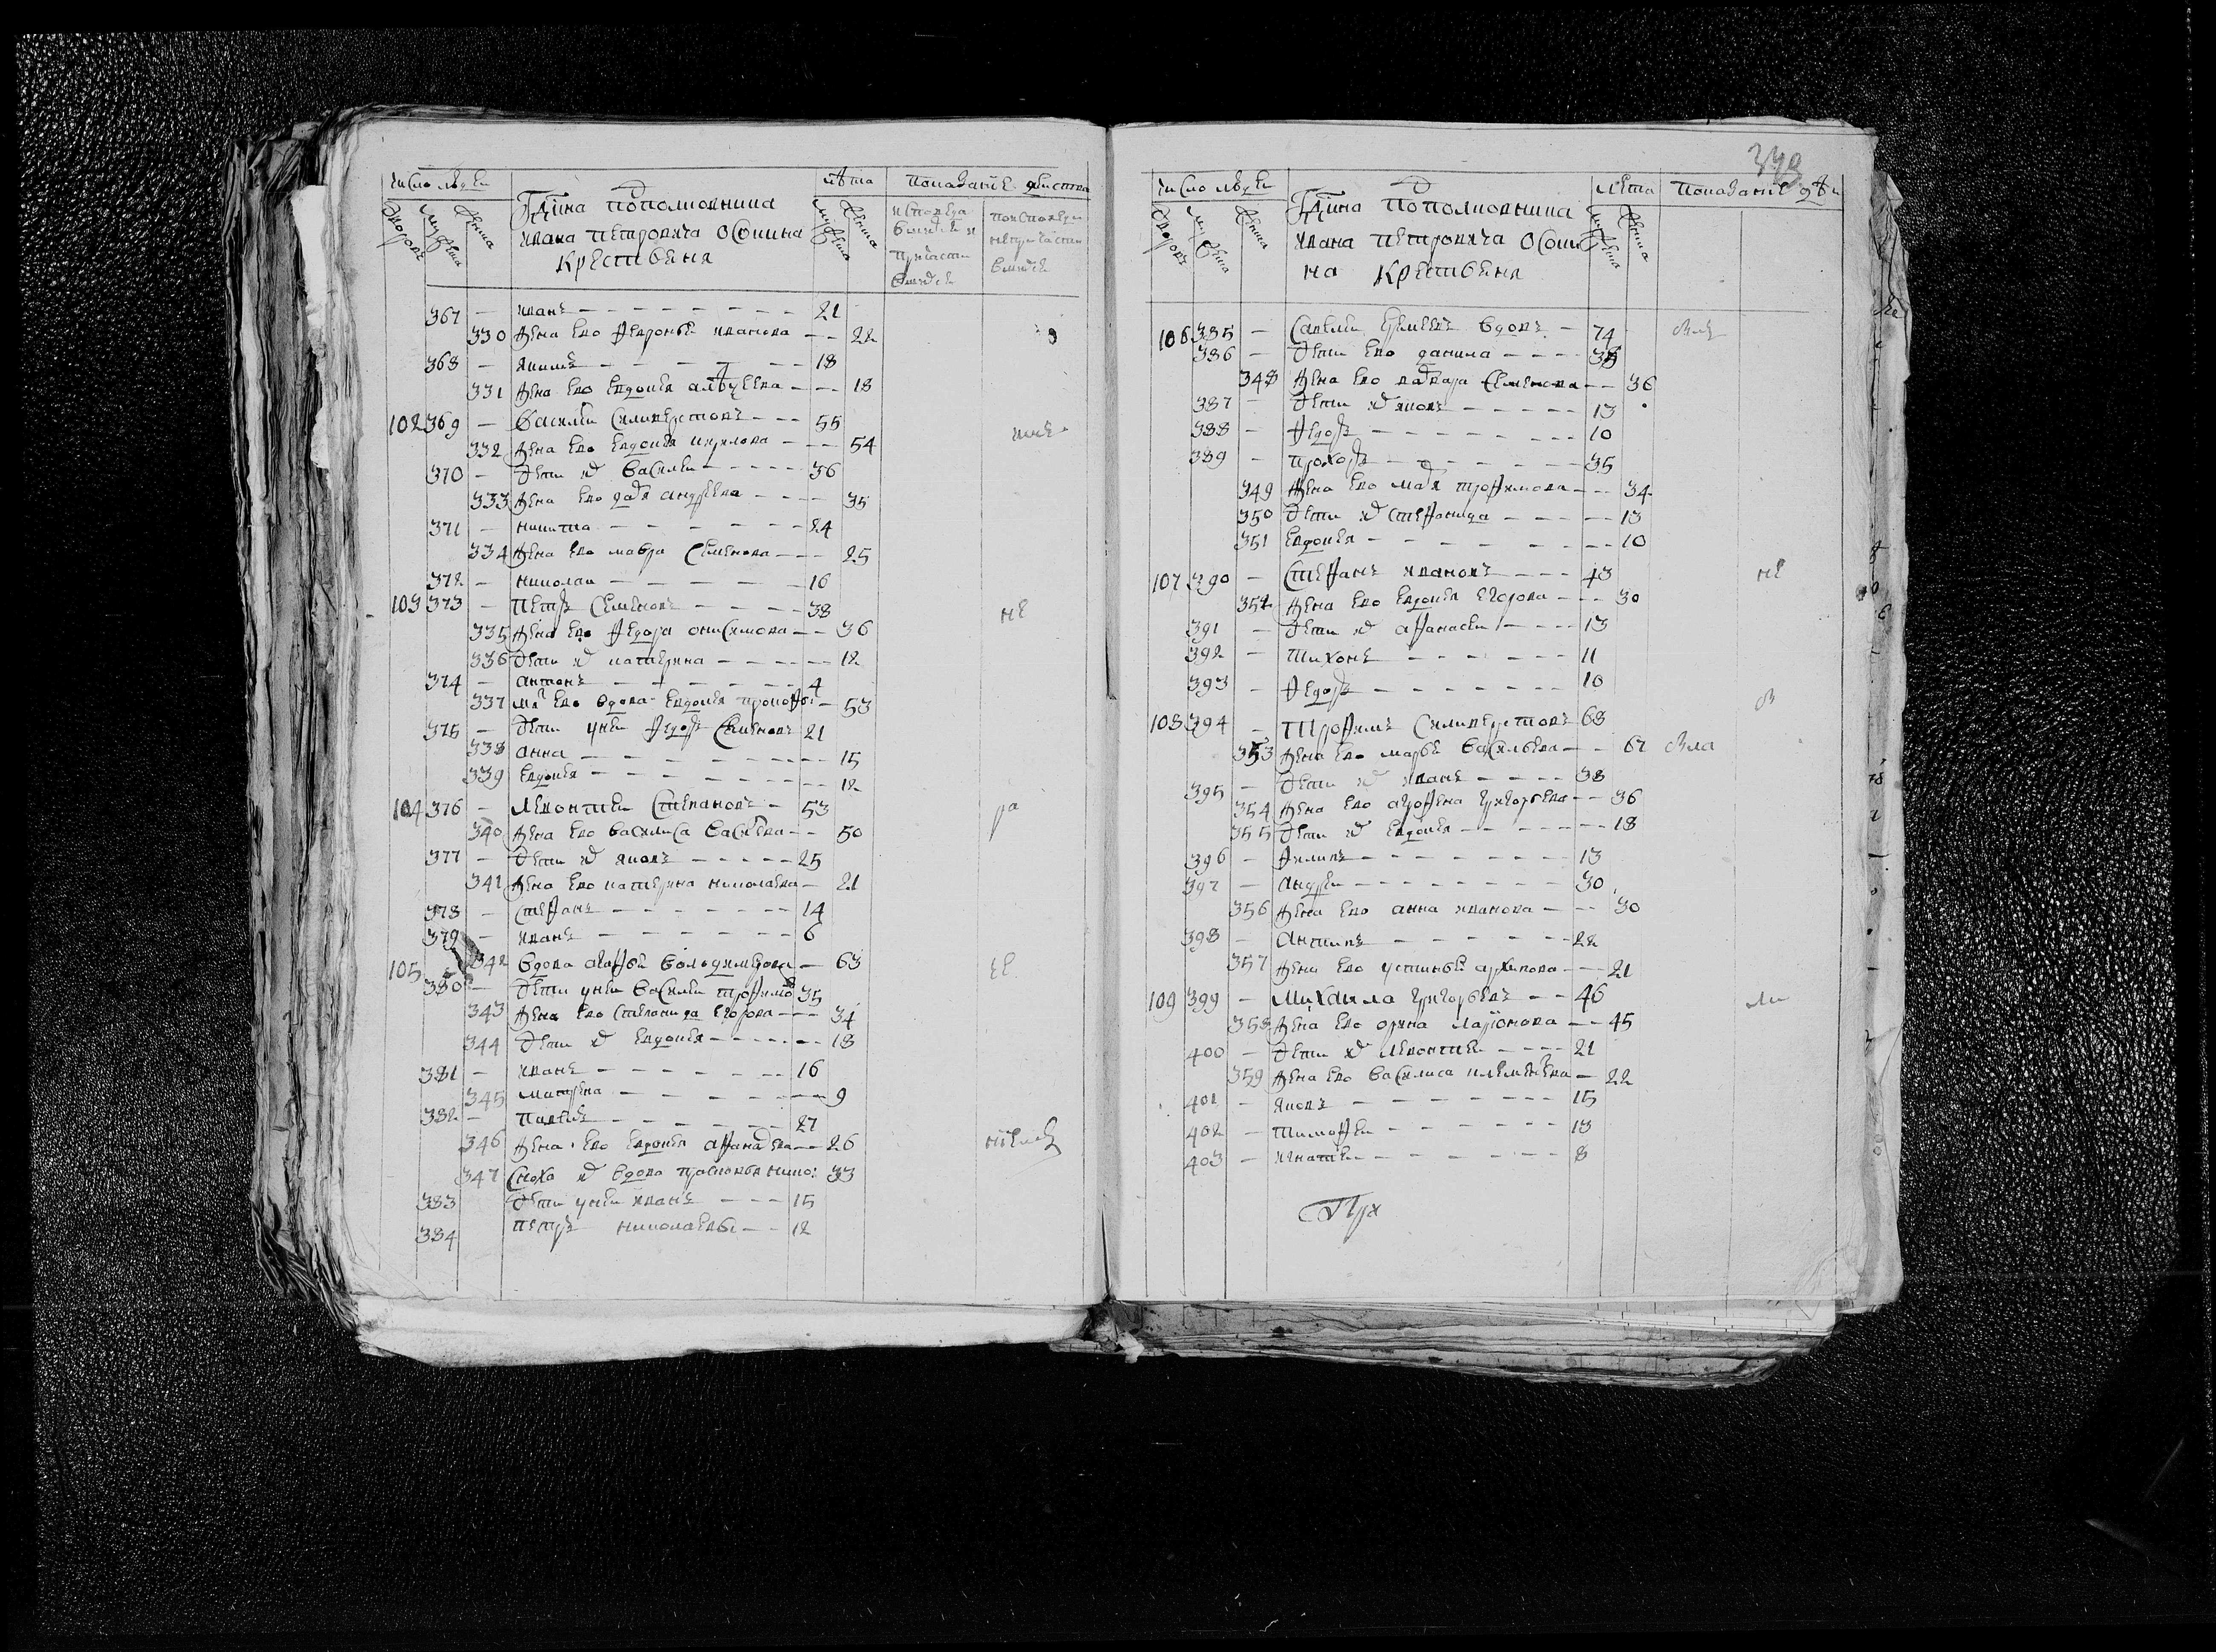 число людеи
лѣта
показание действа
дворовъ
мужеска
женска
Гдина пополковника
ивана петровича осонина
крестьяня
мужеска
женска
367 — иванъ — 21
330 жена ево февронья иванова — 22
368 — якимъ — 18
331 жена ево евдокея — 18
102 369 — василеи силиверстовъ — 55
332 жена ево евдокея кирилова — 54
370 — дети их василеи — 36
333 жена ево даря андреева — 35
371 — никита — 24
334 жена ево мавра семенова — 25
372 — николаи — 16
103 373 — петръ семеновъ — 38
не
335 жена ево федора онисимова — 36
336 дети их катерина — 12
374 — антонъ — 4
337 мт ево вдова евдокея прокофь: — 53
375 — дети унеи федоръ семеновъ 21
338 анна — 15
339 евдокея — 12
104 376 — левонтеи степановъ — 53
ра
340 жена ево василиса васильева — 50
377 — дети их яковъ — 25
341 жена ево катерина николаева — 21
378 — стефанъ — 14
379 — иванъ — 6
105 342 вдова агафья вольдимерова — 63
380 — дети унеи василеи трофимов 35
343 жена ево степанида егорова — 34
344 дети их евдокея — 18
381 — иванъ — 16
345 матрена — 9
382 — павелъ — 27
346 жена ево евдокея афанасева — 26
347 сноха их вдова прасковья нико: 33
383 дети унеи иванъ — 15
384 петръ николаевы — 12
число людеи
лѣта
показание
дворовъ
мужеска
женска
Гдина пополковника
ивана петровича осони
на крестьяня
мужеска
женска
106 385 — савелеи еремеевъ вдовъ — 74
386 — дети ево данила —
348 жена ево варвара семенова — 36
387 — дети их яковъ — 13
388 — федоръ — 10
389 — прохоръ — 35
349 жена ево мая трофимова — 34
350 дети их стефанида — 13
351 евдокея — 10
107 390 — стефанъ ивановъ — 43
не
352 жена ево евдокея егорова — 30
391 — дети их афанасеи — 13
392 — тихонъ — 11
393 — федоръ — 10
108 394 — трофимъ силиверстовъ 68
353 жена ево марья васильева — 67
395 — дети их иванъ — 38
354 жена ево агрофена григорьева — 36
355 дети их евдокея — 18
396 — филипъ — 13
397 — андреи — 30
356 жена ево анна иванова — 30
398 — антипъ — 22
357 жена ево устинья архипова — 21
109 399 — михаила григорьевъ — 46
ли
358 жена ево орина ларионова — 45
400 — дети их левонтеи — 21
359 жена ево василиса клеменьева — 22
401 — яковъ — 15
402 — тимофеи — 13
403 — игнатеи — 8
При